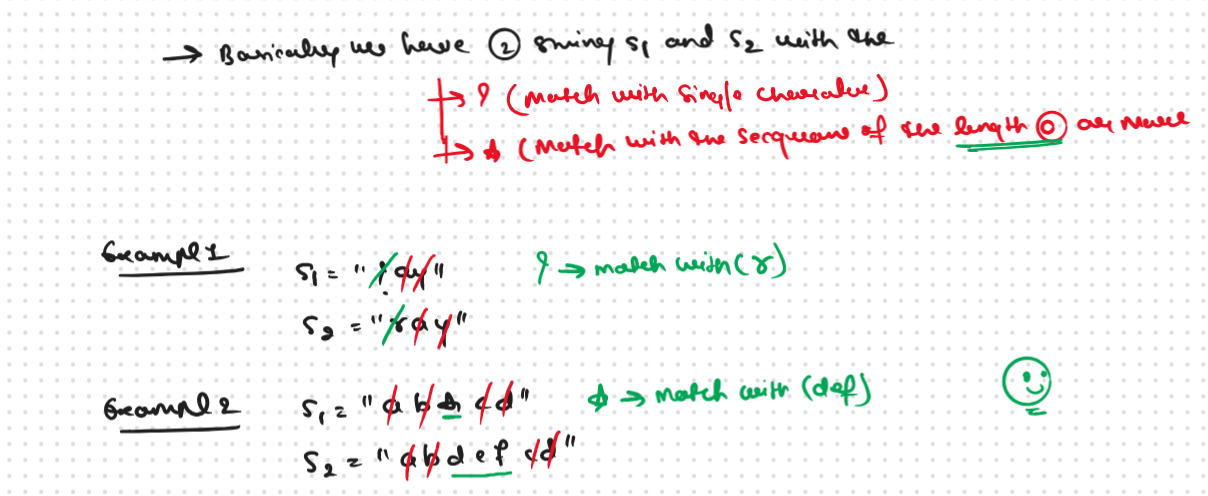 → Basically we have ② string s1 and s2 with the
→ ? (match with single character)
→ * (match with the sequence of the length ⓪ or more
Example 1
s1 = "?ay" ? → match with (r)
s2 = "ray"
Example 2
s1 = "ab*cd" * → match with (def)
s2 = "abdefcd"